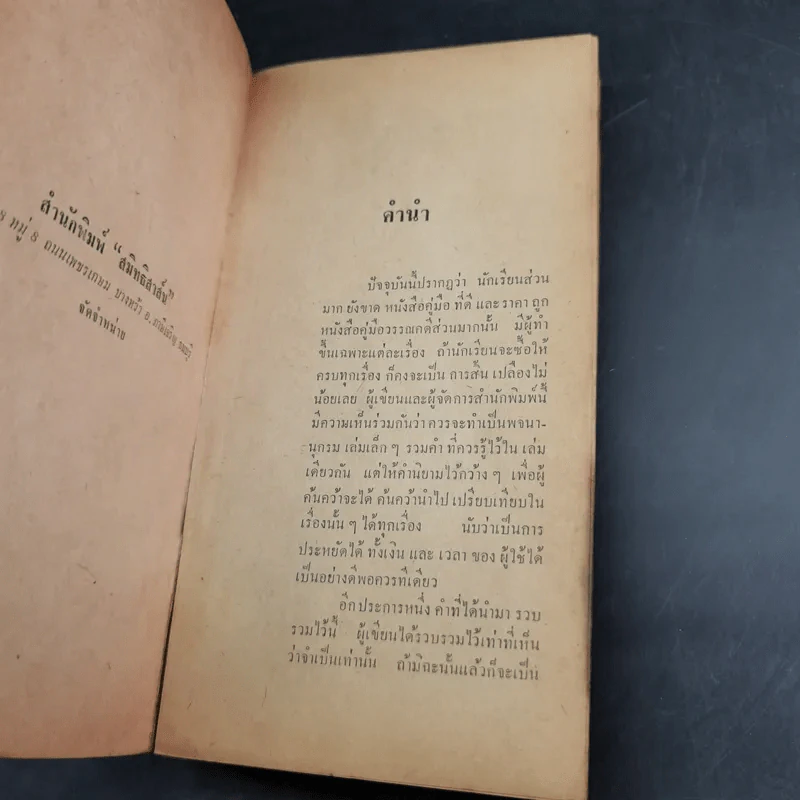 สำนักพิมพ์ "สมิทธิสาส์น"
8 หมู่ 8 ถนนเพชรเกษม บางหว้า อ.ภาษีเจริญ ธนบุรี
จัดจำหน่าย
คำนำ
ปัจจุบันนี้ปรากฏว่า นักเรียนส่วน
มาก ยังขาด หนังสือคู่มือ ที่ดี และ ราคา ถูก
หนังสือคู่มือวรรณคดีส่วนมากนั้น มีผู้ทำ
ขึ้นเฉพาะแต่ละเรื่อง ถ้านักเรียนจะซื้อให้
ครบทุกเรื่อง ก็คงจะเป็น การสิ้น เปลืองไม่
น้อยเลย ผู้เขียนและผู้จัดการสำนักพิมพ์นี้
มีความเห็นร่วมกันว่า ควรจะทำเป็นพจนา-
นุกรม เล่มเล็ก ๆ รวมคำ ที่ควรรู้ไว้ใน เล่ม
เดียวกัน แต่ให้คำนิยามไว้กว้าง ๆ เพื่อผู้
ค้นคว้าจะได้ ค้นคว้านำไป เปรียบเทียบใน
เรื่องนั้น ๆ ได้ทุกเรื่อง นับว่าเป็นการ
ประหยัดได้ ทั้งเงิน และ เวลา ของ ผู้ใช้ได้
เป็นอย่างดีพอควรทีเดียว
อีกประการหนึ่ง คำที่ได้นำมา รวบ
รวมไว้นี้ ผู้เขียนได้รวบรวมไว้เท่าที่เห็น
ว่าจำเป็นเท่านั้น ถ้ามิฉะนั้นแล้วก็จะเป็น